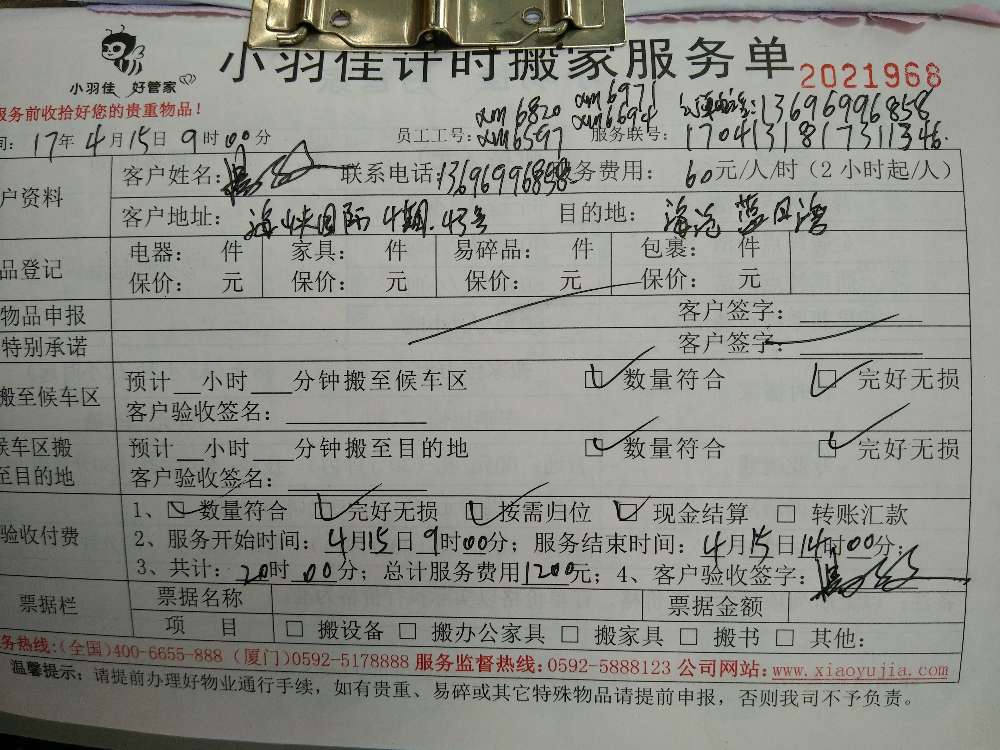 小羽佳 好管家
小羽佳计时搬家服务单 2021968
服务前收拾好您的贵重物品！
xm6820 xm6971 13696996858
间：17年4月15日9时00分 员工工号：xm6597 xm6694 服务联号：1704131817311346
户资料 客户姓名： 联系电话：13696996858 务费用：60元/人/时（2小时起/人）
客户地址：海峡国际4期.43号 目的地：海沧蓝月湾
品登记 电器： 件 家具： 件 易碎品： 件 包裹： 件
保价： 元 保价： 元 保价： 元 保价： 元
物品申报 客户签字：
特别承诺 客户签字：
搬至候车区 预计__小时___分钟搬至候车区 □数量符合 □完好无损
客户验收签名：
候车区搬至目的地 预计__小时___分钟搬至目的地 □数量符合 □完好无损
客户验收签名：
验收付费 1、□数量符合 □完好无损 □按需归位 □现金结算 □ 转账汇款
2、服务开始时间：4月15日9时00分；服务结束时间：4月15日14时00分；
3、共计：20时00分；总计服务费用1200元；4、客户验收签字：
票据栏 票据名称 票据金额
项 目 □ 搬设备 □ 搬办公家具 □ 搬家具 □ 搬书 □ 其他：
务热线：(全国)400-6655-888 (厦门)0592-5178888 服务监督热线：0592-5888123 公司网站：www.xiaoyujia.com
温馨提示：请提前办理好物业通行手续，如有贵重、易碎或其它特殊物品请提前申报，否则我司不予负责。